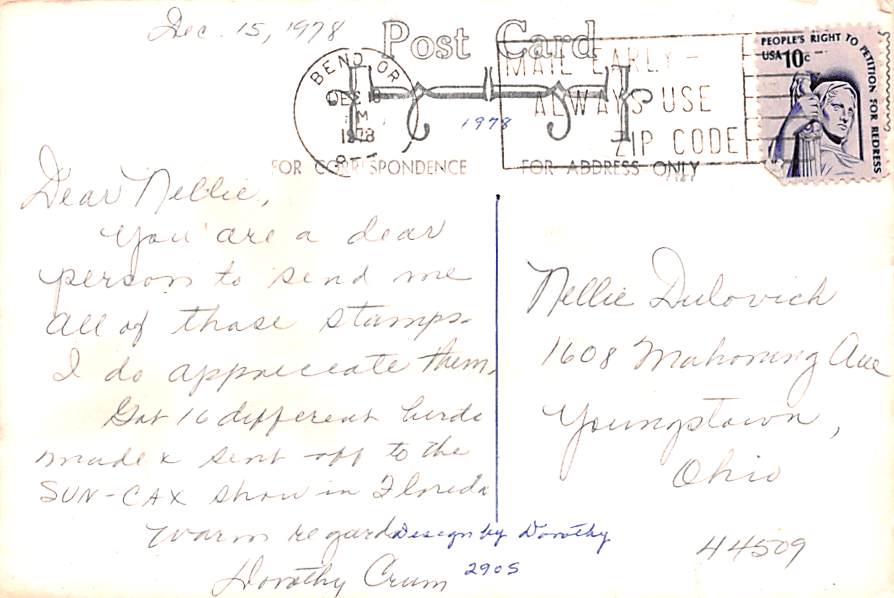 Dec. 15, 1978
Post Card
BEND OR
DEC
PM
1978
MAIL EARLY -
ALWAYS USE
ZIP CODE
PEOPLE'S RIGHT TO PETITION FOR REDRESS
USA 10c
1978
FOR CORRESPONDENCE
FOR ADDRESS ONLY
Dear Nellie,
You are a dear
person to send me
all of those stamps.
I do appreciate them.
Got 16 different birds
made & sent off to the
SUN-CAX show in Florida
Warm regards
Dorothy Crum
Design by Dorothy
2905
Nellie Dulovich
1608 Mahoning Ave
Youngstown,
Ohio
44509